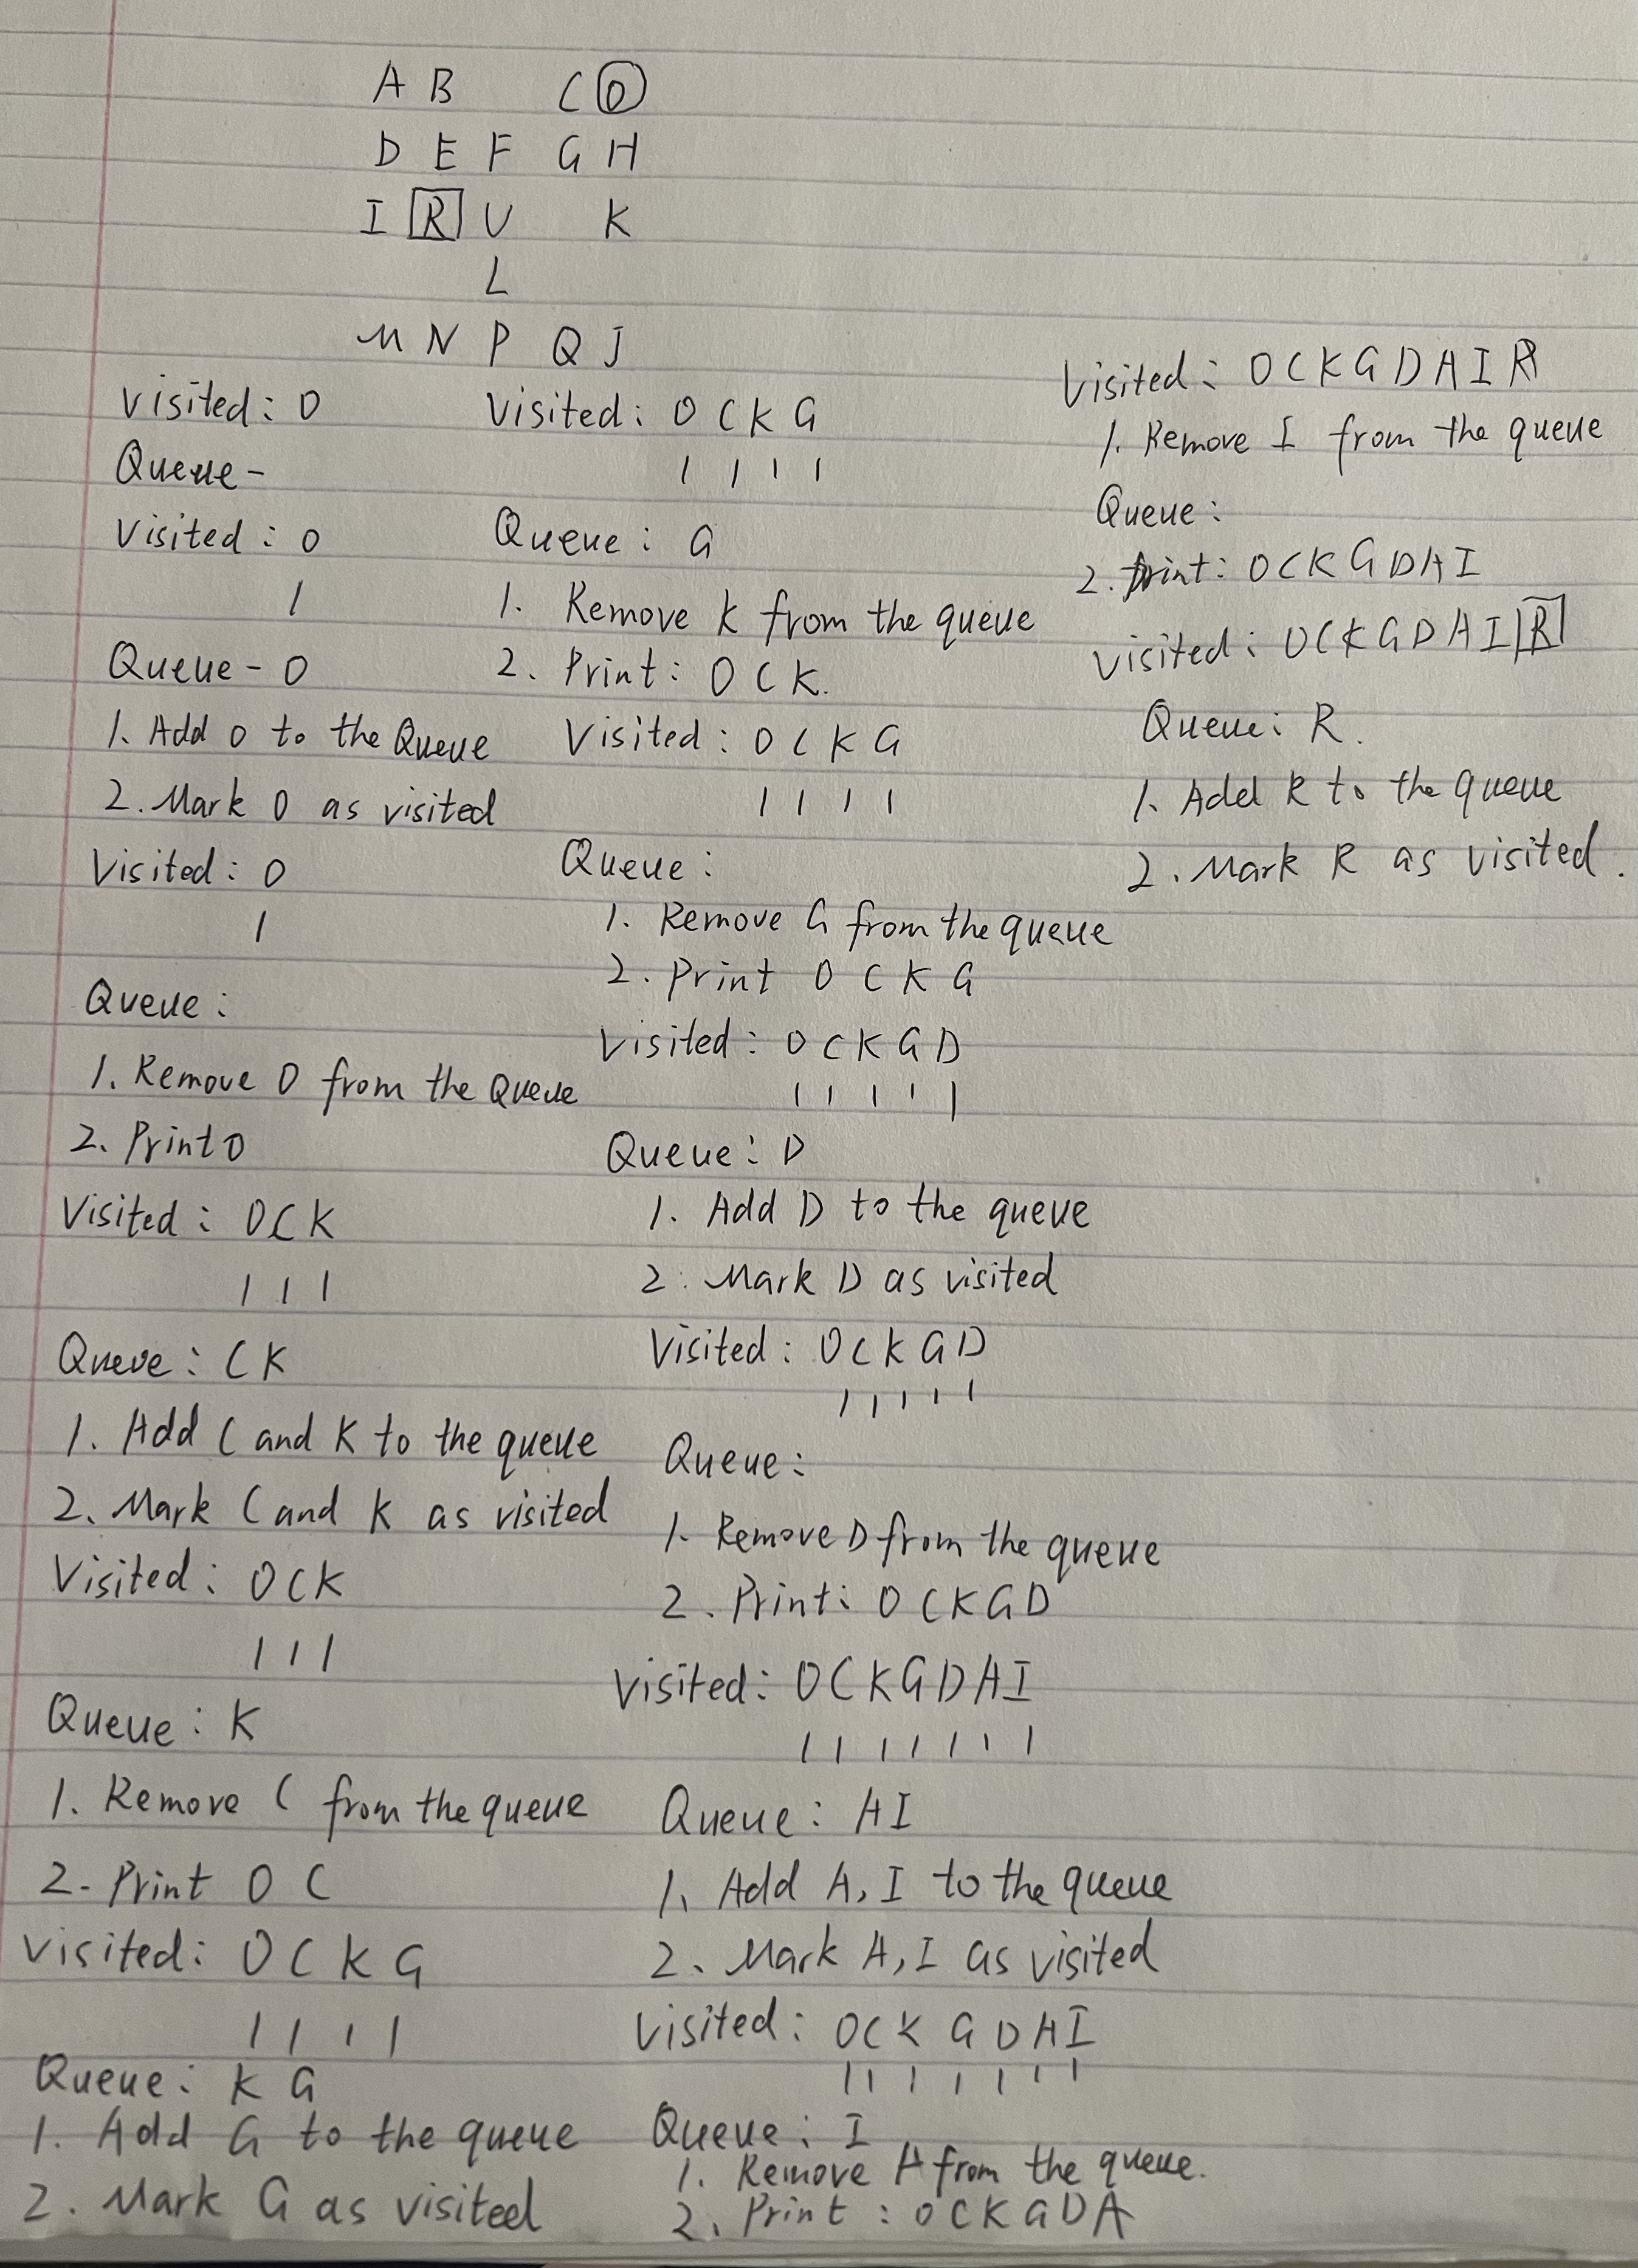 A B C O
D E F G H
I R U K
L
M N P Q J
Visited: O
Queue-
Visited: O
1
Queue- O
1. Add O to the Queue
2. Mark O as visited
Visited: O
1
Queue:
1. Remove O from the Queue
2. Print O
Visited: O C K
1 1 1
Queue: C K
1. Add C and K to the queue
2. Mark C and K as visited
Visited: O C K
1 1 1
Queue: K
1. Remove C from the queue
2. Print O C
Visited: O C K G
1 1 1 1
Queue: K G
1. Add G to the queue
2. Mark G as visited
Visited: O C K G
1 1 1 1
Queue: G
1. Remove K from the queue
2. Print: O C K.
Visited: O C K G
1 1 1 1
Queue:
1. Remove G from the queue
2. Print O C K G
Visited: O C K G D
1 1 1 1 1
Queue: D
1. Add D to the queue
2. Mark D as visited
Visited: O C K G D
1 1 1 1 1
Queue:
1. Remove D from the queue
2. Print: O C K G D
Visited: O C K G D A I
1 1 1 1 1 1 1
Queue: A I
1. Add A, I to the queue
2. Mark A, I as visited
Visited: O C K G D A I
1 1 1 1 1 1 1
Queue: I
1. Remove A from the queue.
2. Print: O C K G D A
Visited: O C K G D A I R
1. Remove I from the queue
Queue:
2. Print: O C K G D A I
Visited: O C K G D A I R
Queue: R.
1. Add R to the queue
2. Mark R as visited.